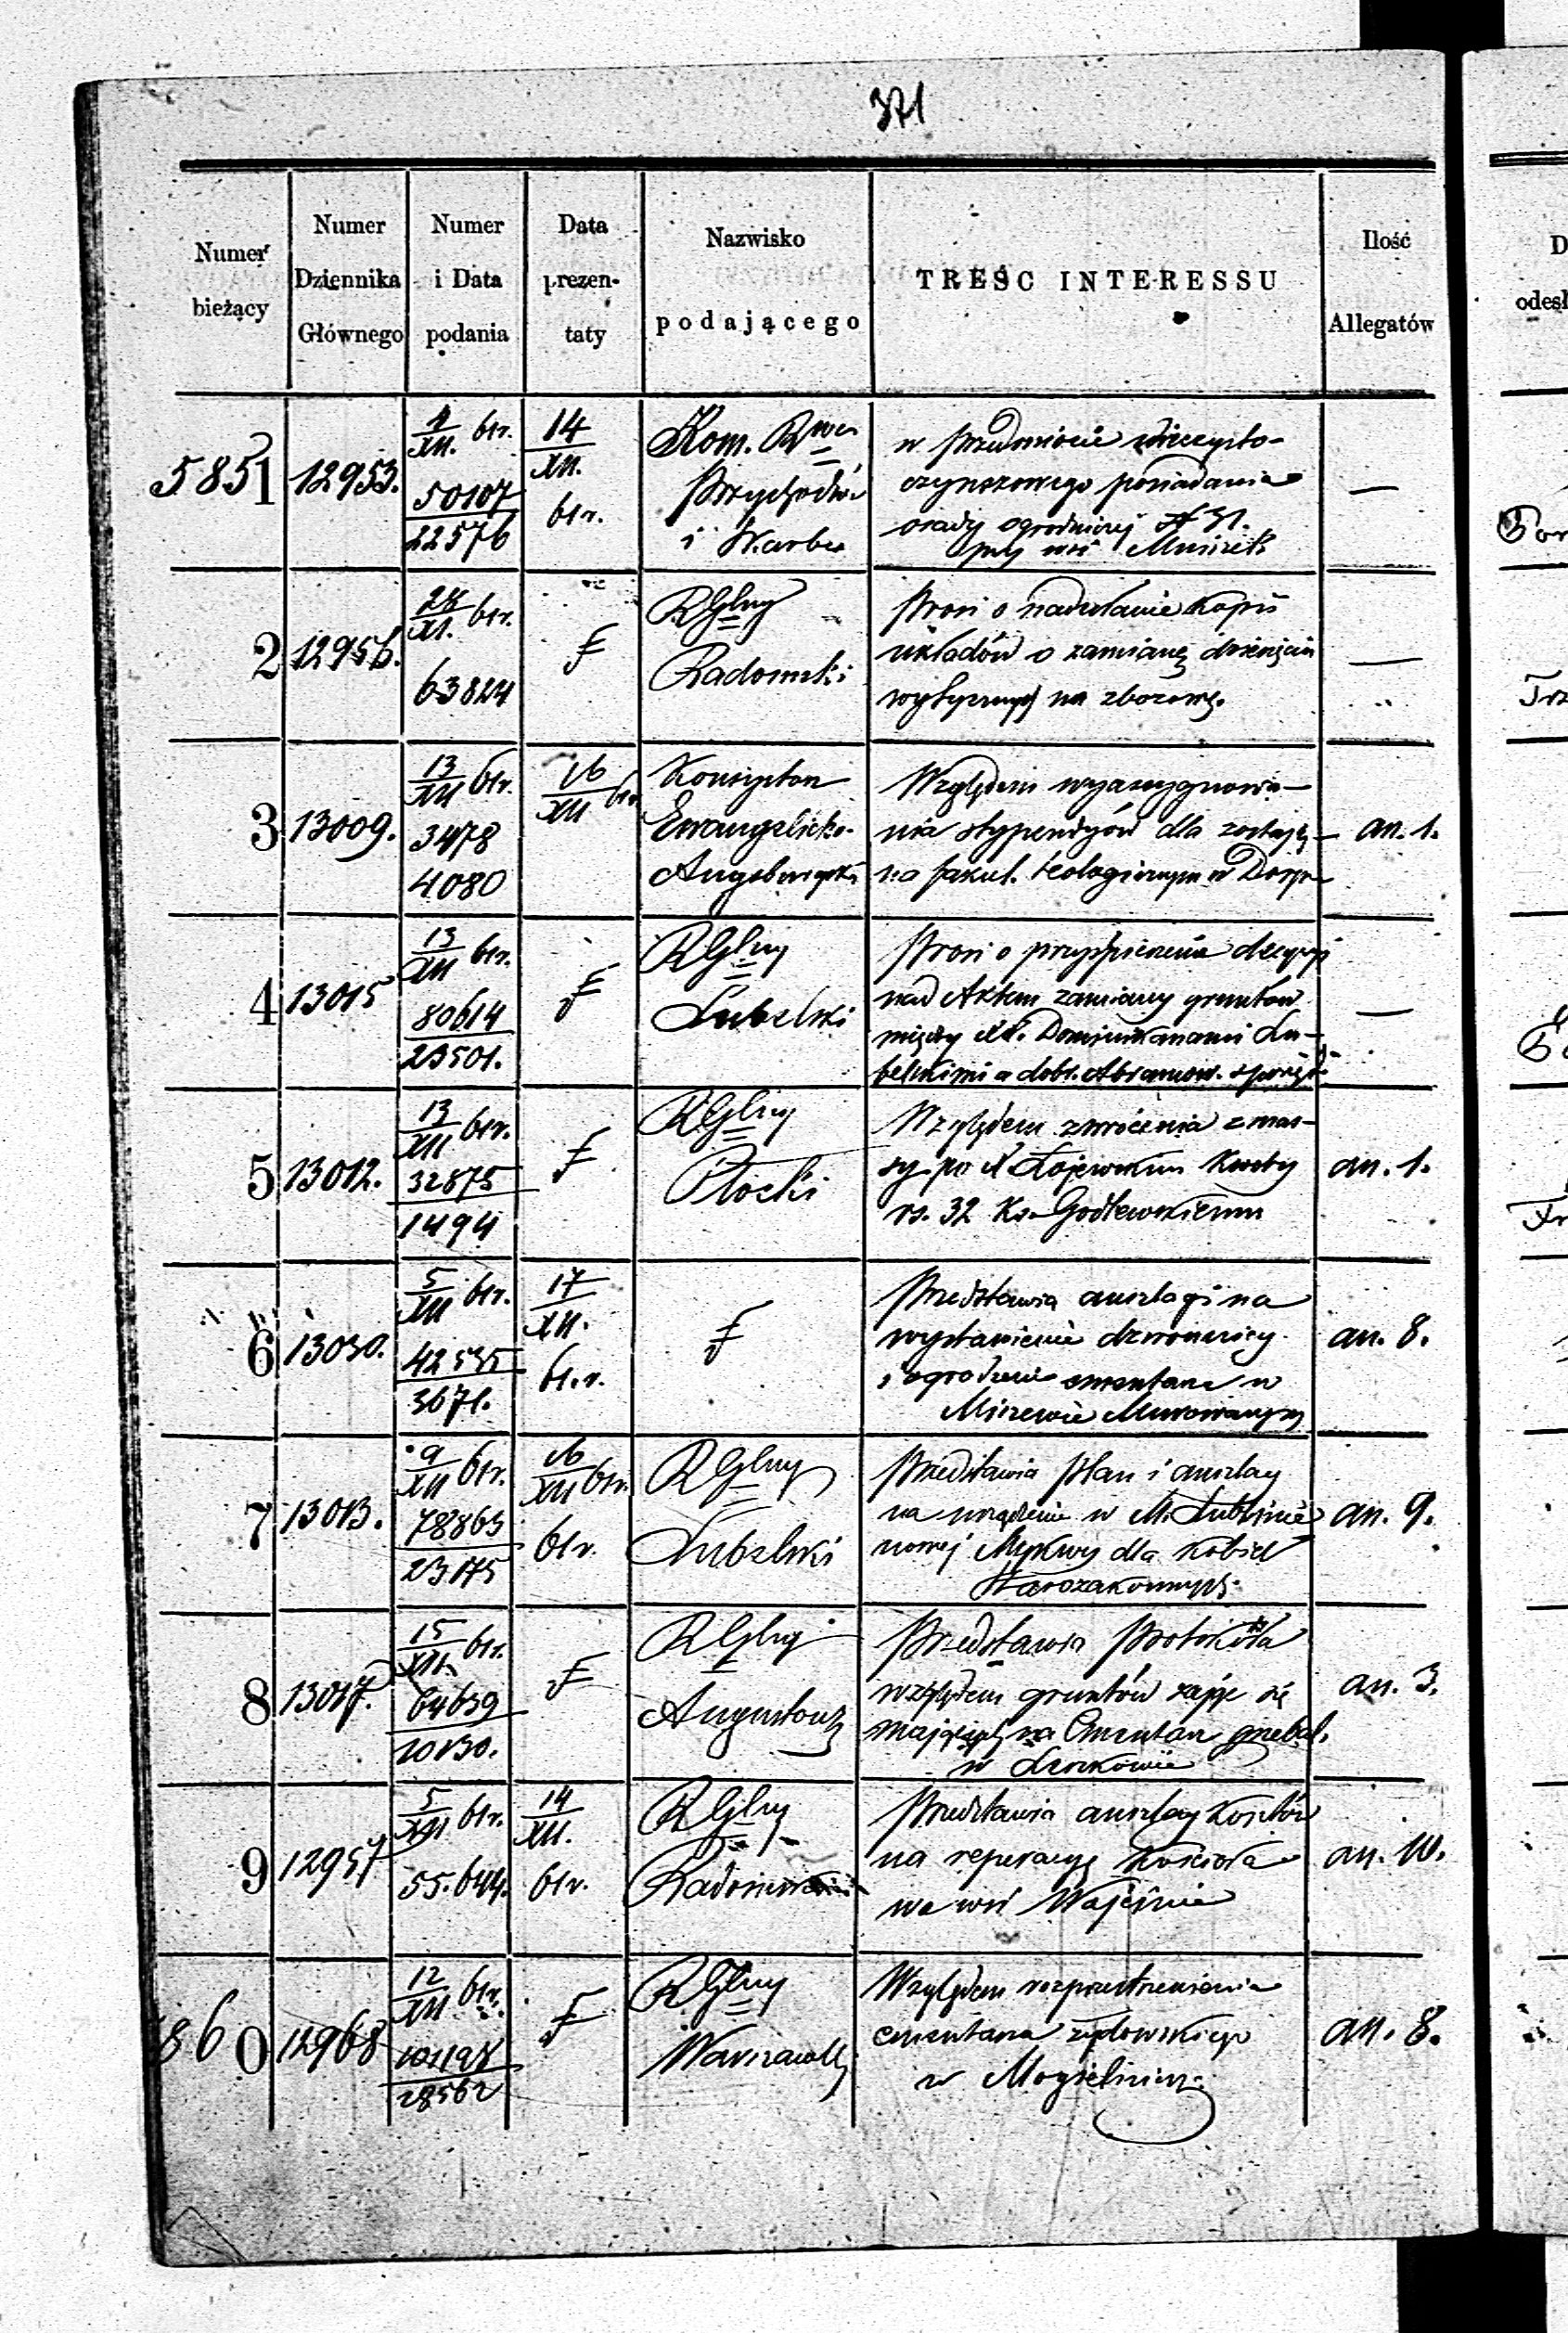 371
Numer bieżący
Numer Dziennika Głównego
Numer i Data podania
Data prezentaty
Nazwisko podającego
TREŚC INTERESSU
Ilość Allegatów
5851
12953.
4/XII. 61r.
50107
22576
14/XII.
61r.
Kom. Rwa
Przychodów
i Skarbu
w przedmiocie wieczysto-
czynszowego posiadania
osady ogrodniczej N 31.
przy wsi
—
2
12956.
28/XI. 61r.
63824
f
RGlny
Radomski
Prosi o nadesłanie kopii
układów o zamianę dziesięcin
wytycznych na zbozową.
—
3
13009.
13/XII 61r.
3478
4080
16/XII 61r
Konsystorz
Ewangelicko-
Augsburgski
Względem wyassygnowa-
nia stypendyów dla
na fakul. teologicznym w Dorp
an. 1.
4
13015
13/XII 61r.
80614
23501.
f
RGlny
Lubelski
Prosi o przyśpieszenie decyzyi
nad Aktem zamiany gruntów
między XX. Dominikanami Lu-
belskimi a dobr. Abramow.
—
5
13012.
13/XII 61r.
32875
1494
f
RGlny
Płocki
Względem zwrócenia z mas-
sy po X Łojewskim kwoty
rs. 32 Ks. Godlewskiemu
an. 1.
6
13030.
5/XII 61r.
42535
3671.
17/XII.
61.r.
f
Przedstawia anszlagi na
wystawienie dzwonnicy
i ogrodzenie cmentarza w
Miszewie Murowanym
an. 8.
7
13013.
9/XII 61r.
78865
23175
16/XII 61r.
61r.
RGlny
Lubelski
Przedstawia plan i anszlag
na urządzenie w M. Lublinie
nowej Mykwy dla kobiet
Starozakonnych.
an. 9.
8
13017.
15/XII. 61r.
64639
10130.
f
RGlny
Augustows
Przedstawia Protokóła
względem gruntów zająć się
mających na Cmentarz grzebal.
w
an. 3.
9
12957
5/XII 61r.
55.644.
14/XII.
61r.
RGlny
Radomski
Przedstawia anszlag kosztów
na reperacyę Kościoła
we wsi
an. 10.
860
12968
12/XII 61r.
28562
f
RGlny
Warszawski
Względem rozprzestrzenienia
cmentarza żydowskiego
w Mogielnicy.
an. 8.
D
odesł